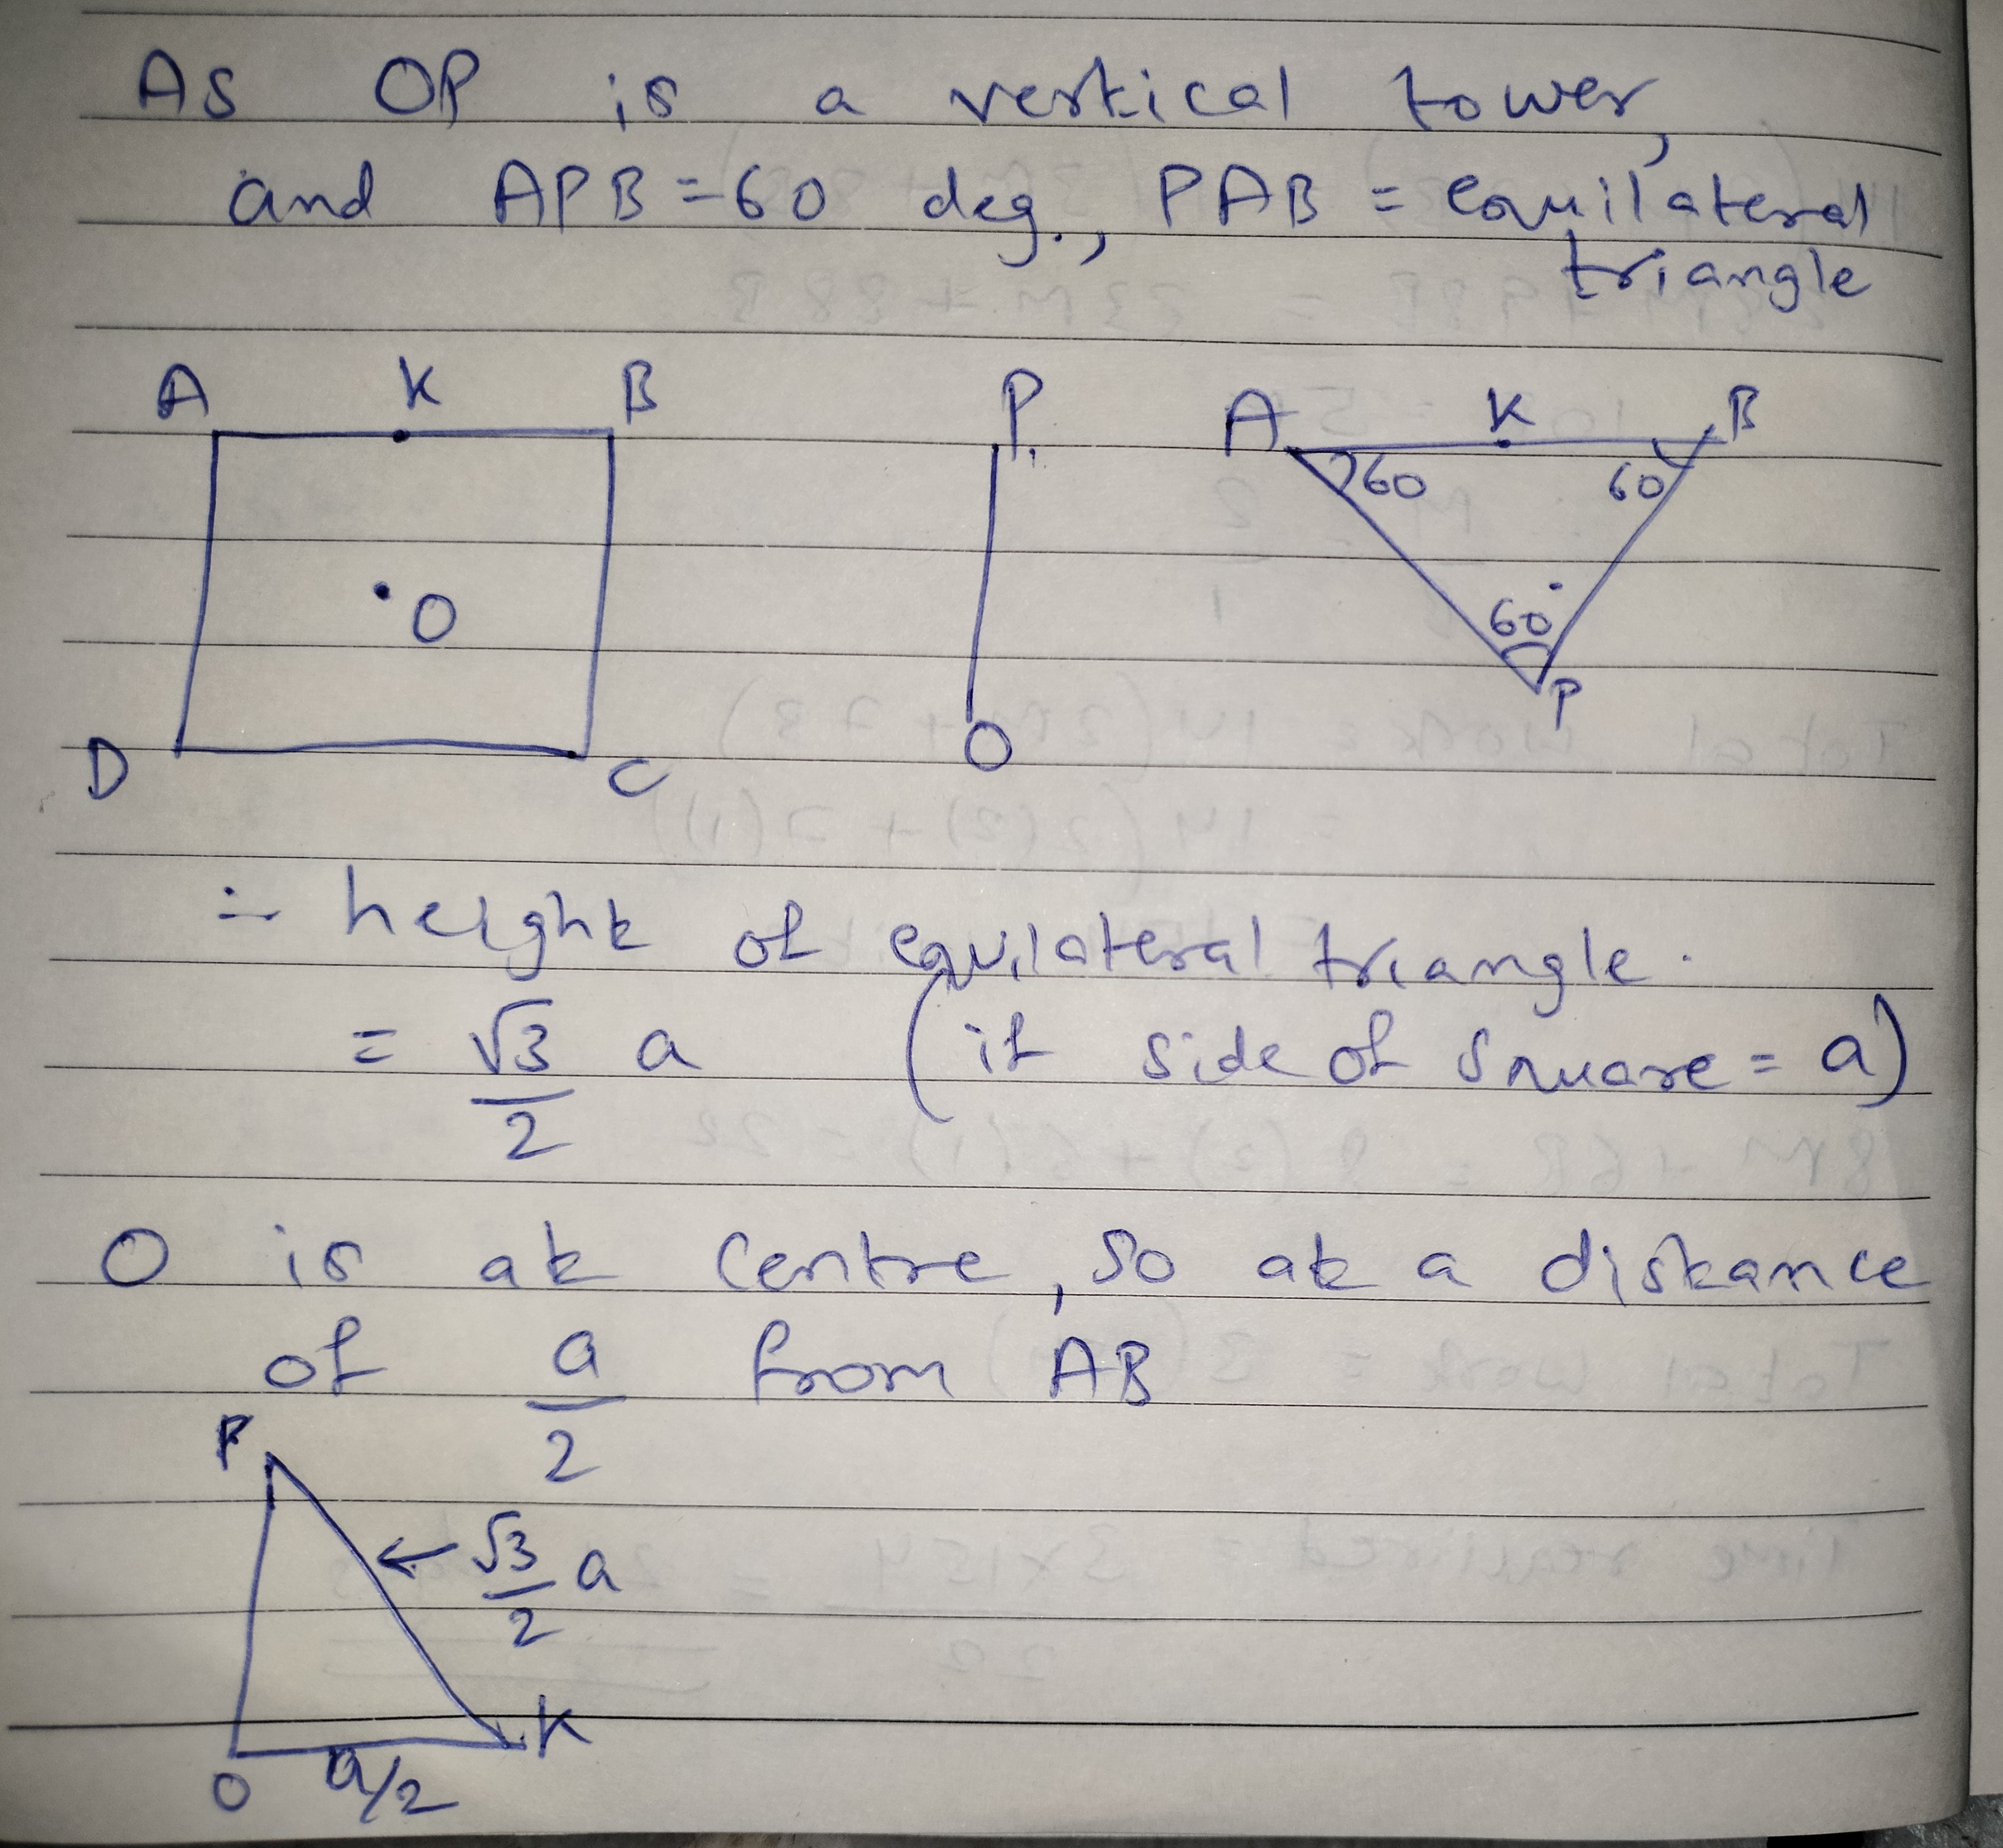 As OP is a vertical tower,
and APB = 60 deg., PAB = equilateral
triangle
A K B
O
D C
P
O
A K B
60 60
60
P
∴ height of equilateral triangle.
= √3/2 a (if side of square = a)
O is at centre, so at a distance
of a/2 from AB
P
← √3/2 a
K
O a/2